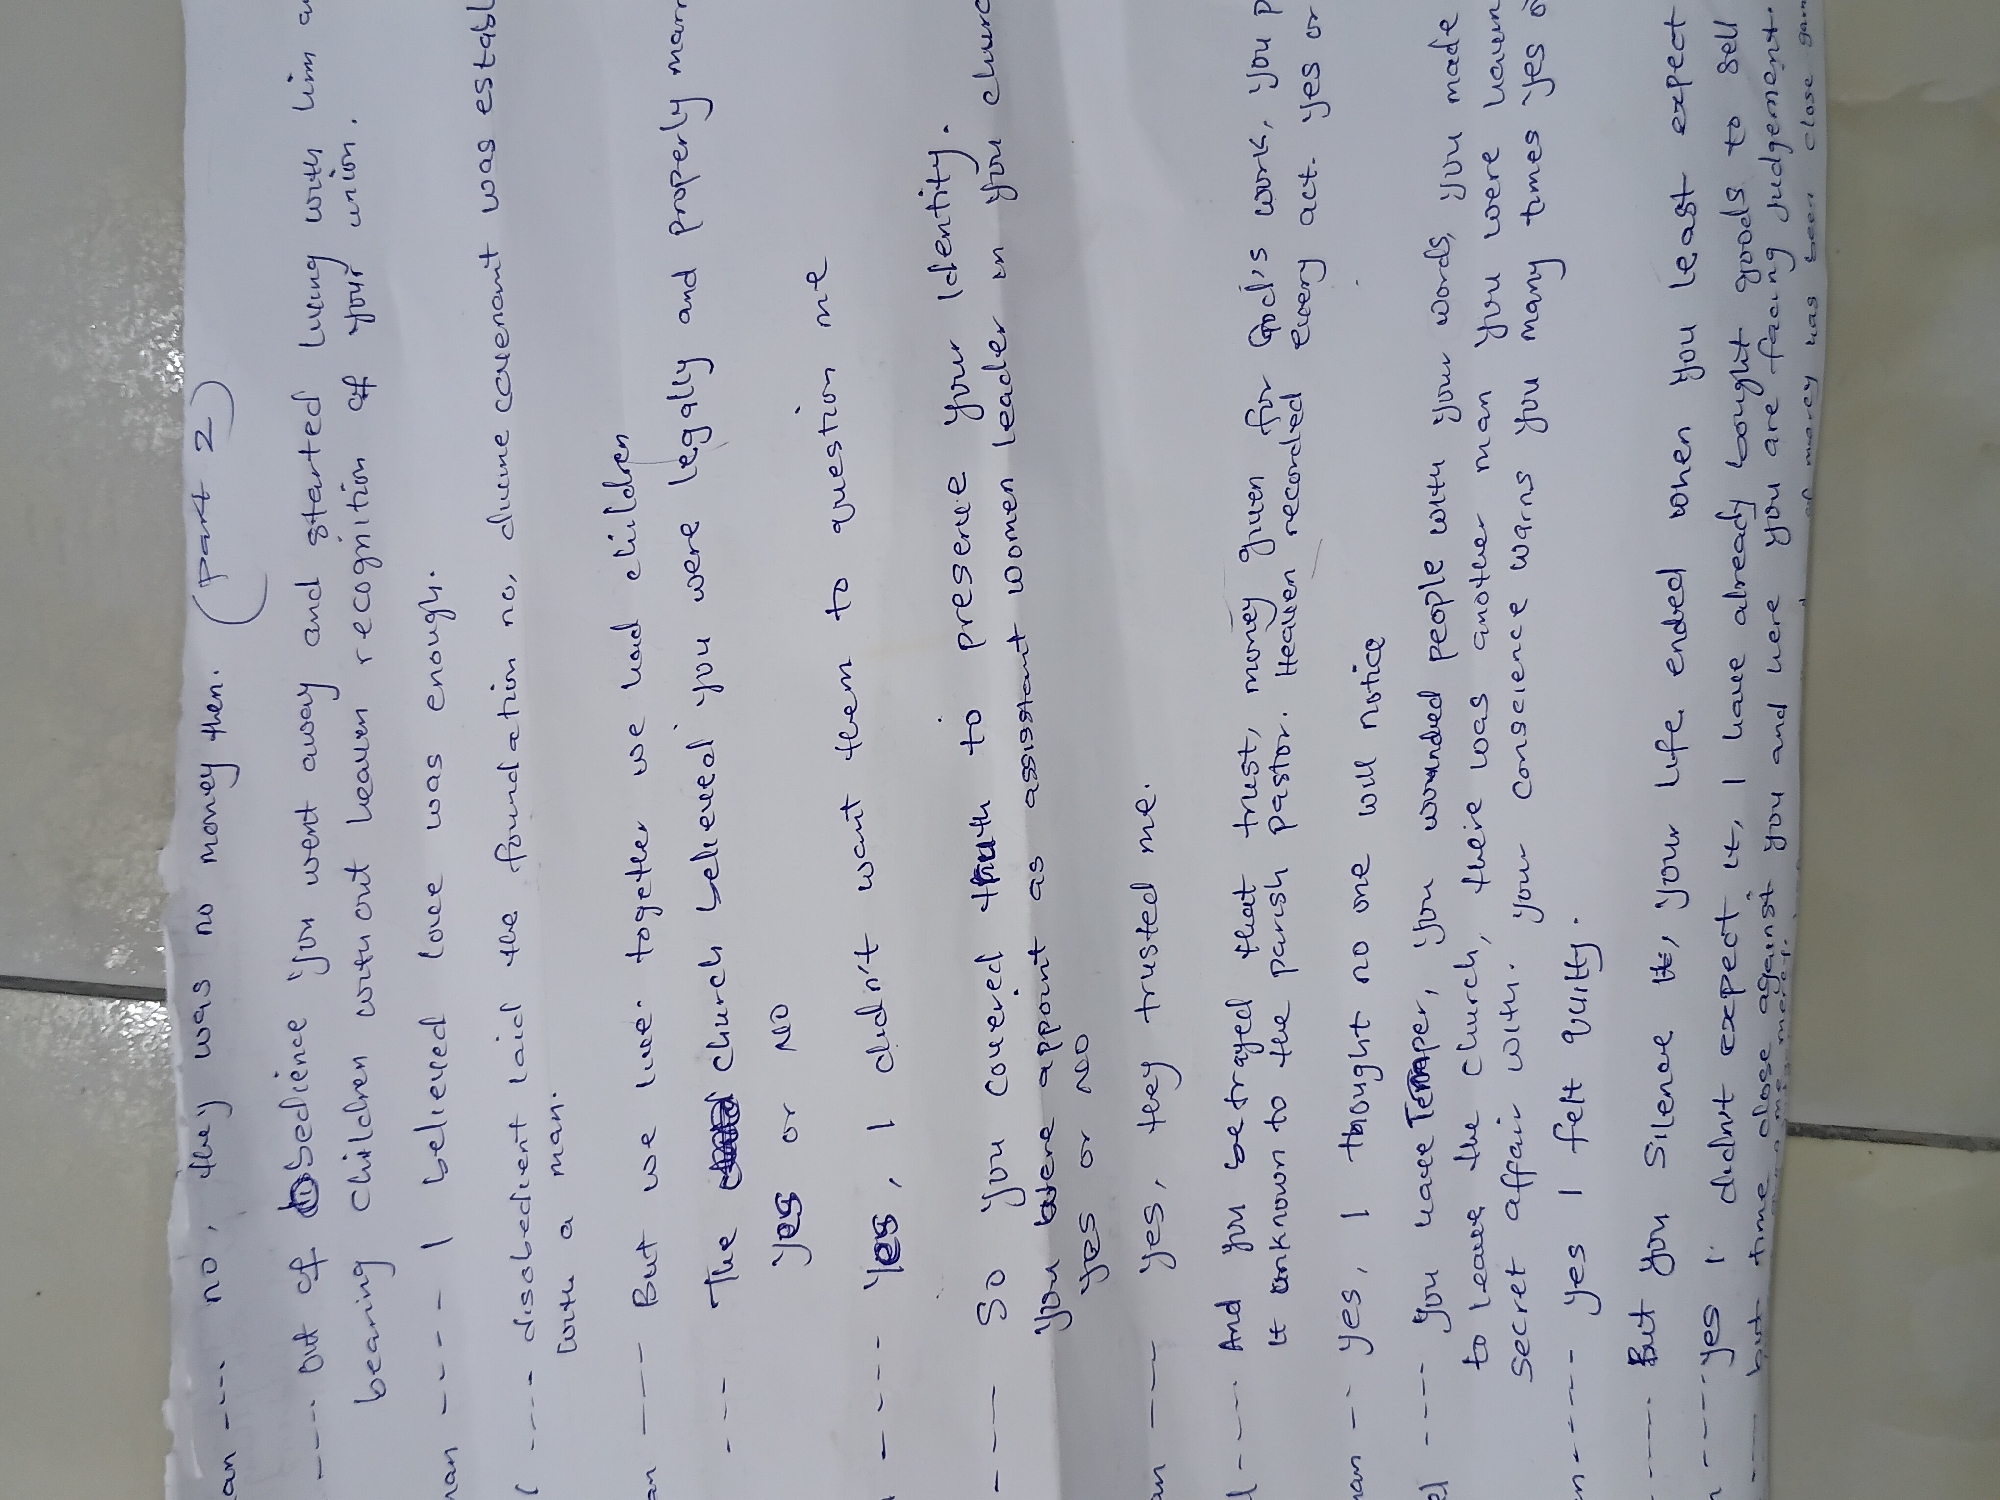 an ---. no, they was no money then. (part 2)
---. Out of Obedience you went away and started living with him a
bearing children without heaven recognition of your union.
man ---- I believed love was enough.
l ---- disobedient laid the foundation no, divine covenant was establ
with a man.
an --- But we live. together we had children
--- The church believed you were legally and properly marr
Yes or NO
---- Yes, I didn't want them to question me
--- So you covered truth to preserve your Identity.
You were appoint as assistant women leader in you churc
Yes or NO
an --- Yes, they trusted me.
l ---- And you betrayed that trust, money given for God's work, you p
it unknown to the parish pastor. Heaven recorded every act. Yes or
man -- Yes, I thought no one will notice
el ---- You have Temper, you wounded people with your words, you made
to leave the church, there was another man you were havin
secret affair with. Your conscience warns you many times Yes o
n---- Yes I felt Guilty.
---- But you Silence it, your life ended when you least expect
n ---- Yes I didnt expect it, I have already bought goods to sell
--- but time close against you and here you are facing judgement.
of mercy has been close